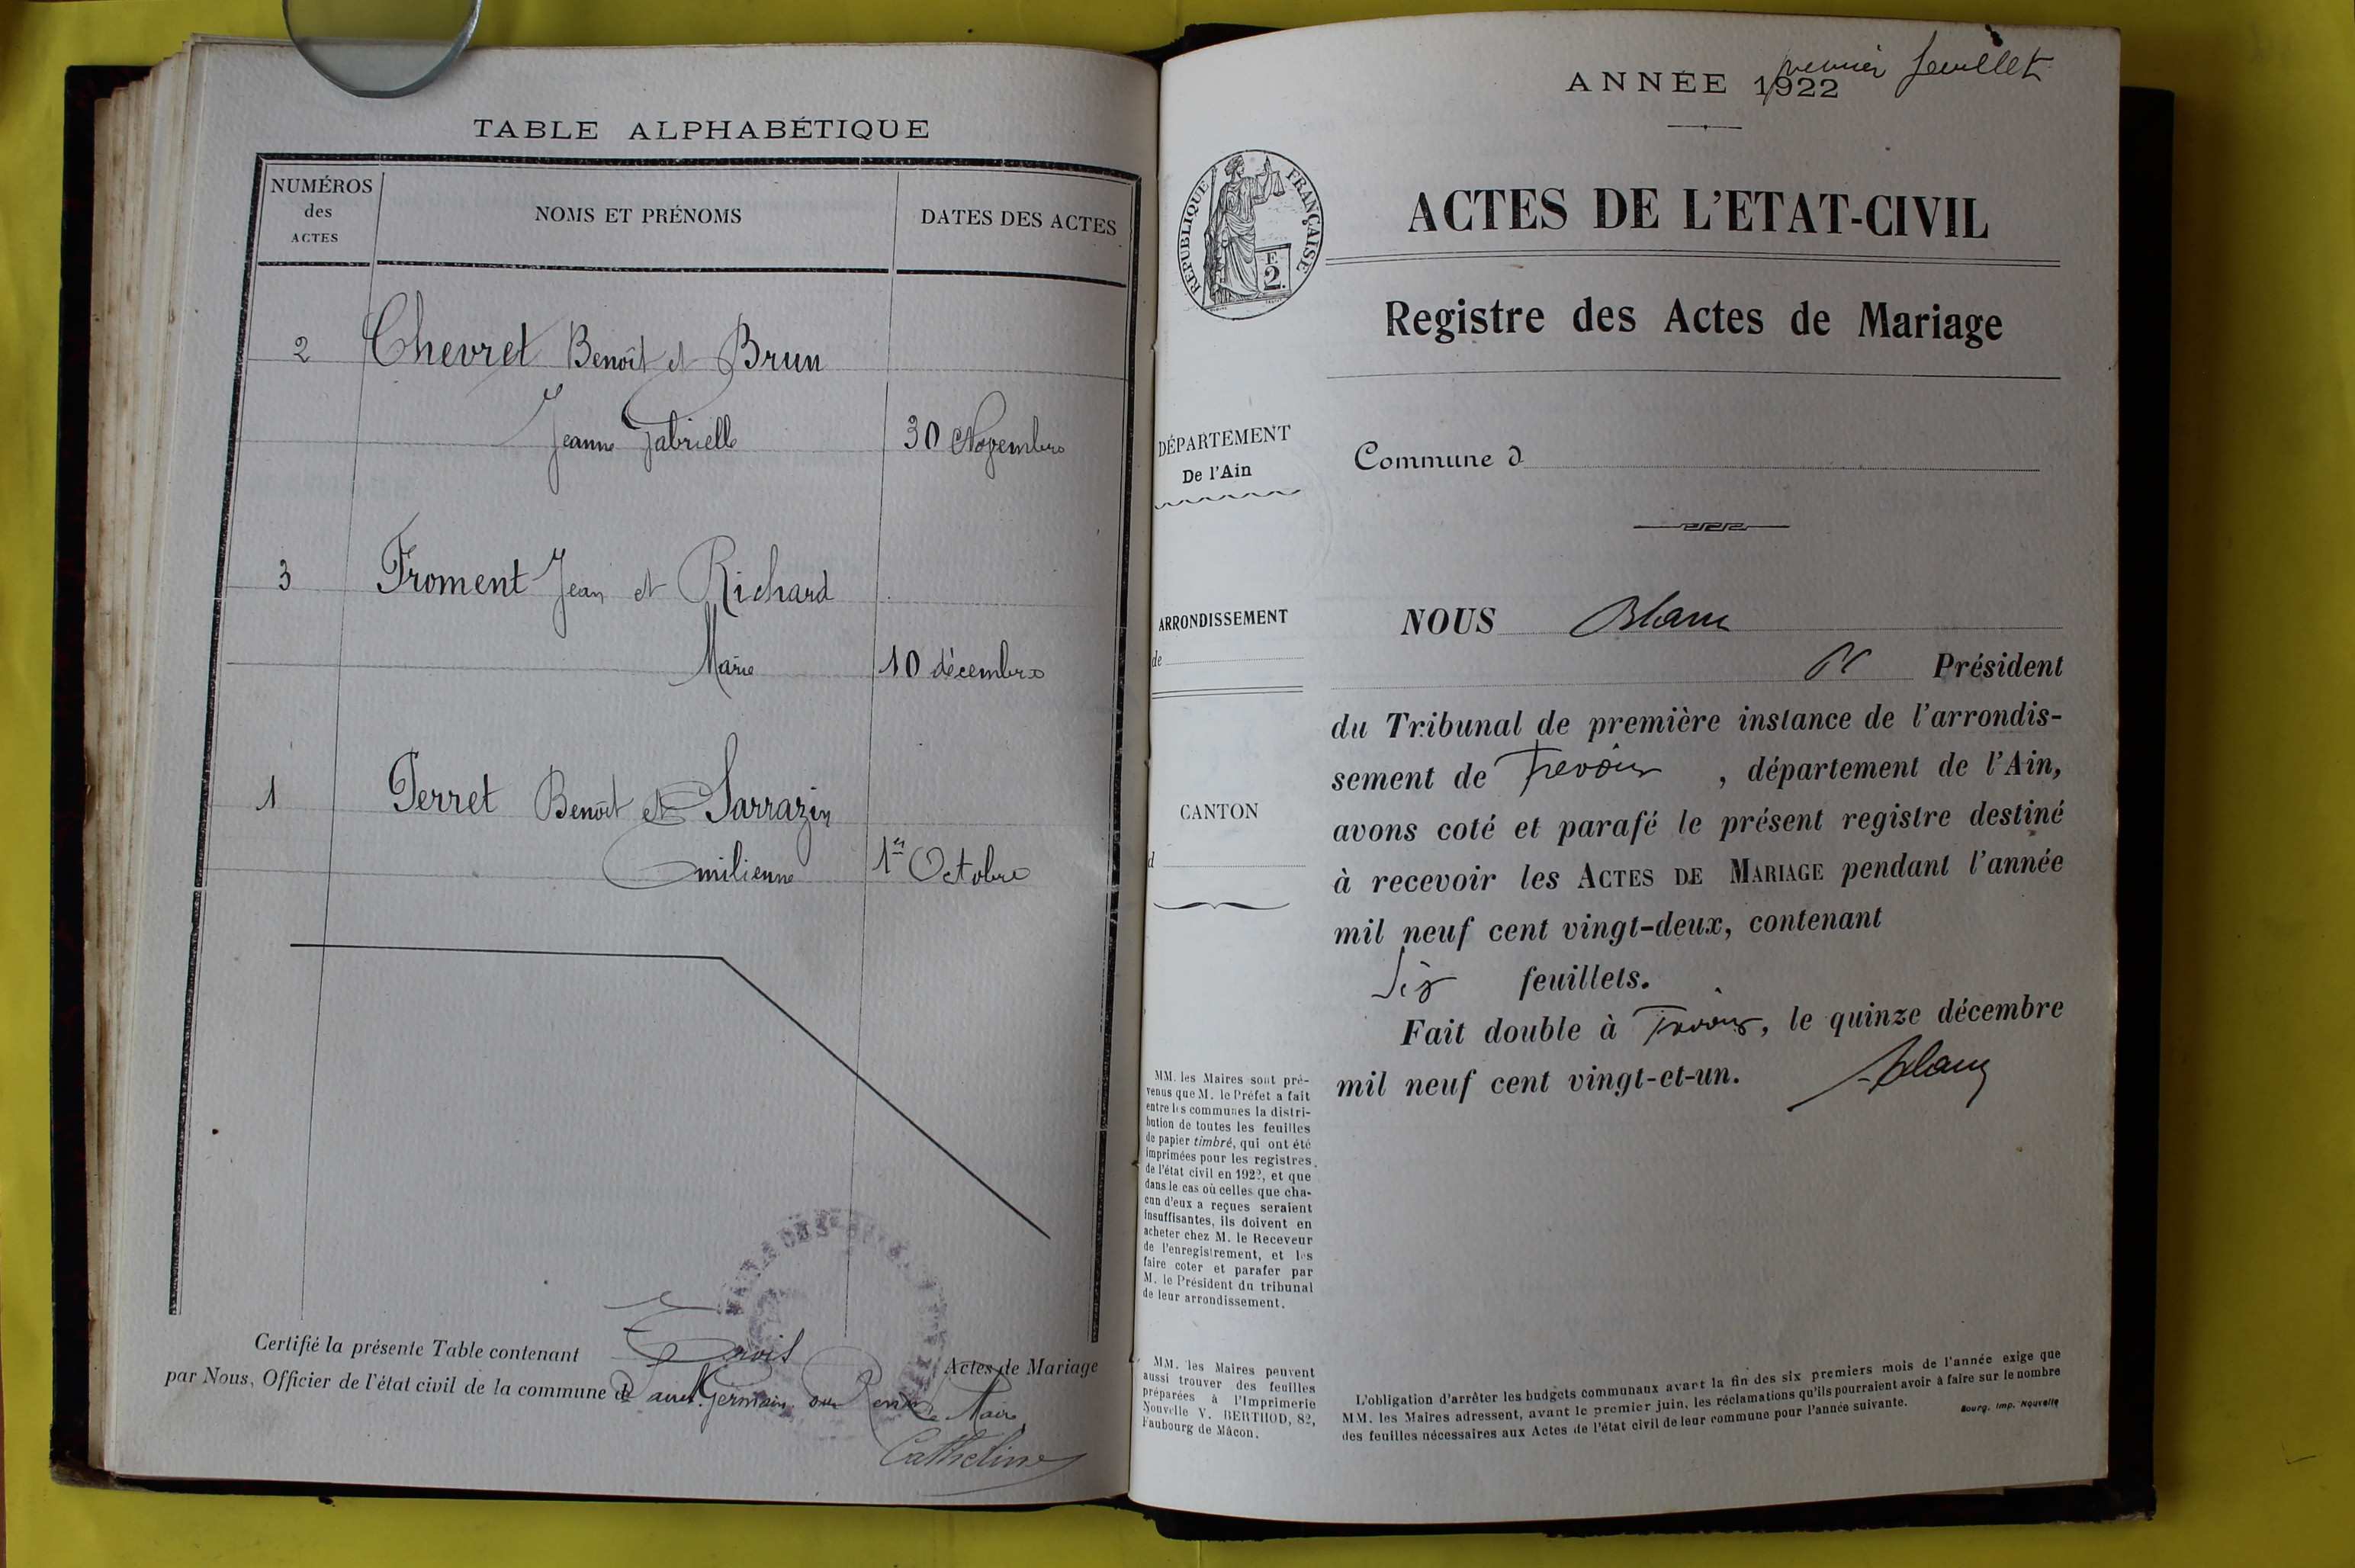 TABLE ALPHABÉTIQUE
NUMÉROS
des
ACTES
NOMS ET PRÉNOMS
DATES DES ACTES
2 Chevret Benoît et Brun
Jeanne Gabrielle 30 Novembre
3 Froment Jean et Richard
Marie 10 décembre
1 Perret Benoît et Sarrazin
Emilienne 1er Octobre
Certifié la présente Table contenant Trois Actes de Mariage
par Nous, Officier de l'état civil de la commune de Saint Germain sur Renon Maire
Catheline
premier feuillet
ANNÉE 1922
RÉPUBLIQUE FRANÇAISE
E
2.
ACTES DE L'ETAT-CIVIL
Registre des Actes de Mariage
DÉPARTEMENT
De l'Ain
Commune d
ARRONDISSEMENT
de
CANTON
d
NOUS Blanc
Président
du Tribunal de première instance de l'arrondis-
sement de Trévoux, département de l'Ain,
avons coté et parafé le présent registre destiné
à recevoir les ACTES DE MARIAGE pendant l'année
mil neuf cent vingt-deux, contenant
six feuillets.
Fait double à Trévoux, le quinze décembre
mil neuf cent vingt-et-un.
Blanc
MM. les Maires sont pré-
venus que M. le Préfet a fait
entre les communes la distri-
bution de toutes les feuilles
de papier timbré, qui ont été
imprimées pour les registres
de l'état civil en 1922, et que
dans le cas où celles que cha-
cun d'eux a reçues seraient
insuffisantes, ils doivent en
acheter chez M. le Receveur
de l'enregistrement, et les
faire coter et parafer par
M. le Président du tribunal
de leur arrondissement.
MM. les Maires peuvent
aussi trouver des feuilles
préparées à l'Imprimerie
Nouvelle V. BERTHOD, 82,
Faubourg de Mâcon.
L'obligation d'arrêter les budgets communaux avant la fin des six premiers mois de l'année exige que
MM. les Maires adressent, avant le premier juin, les réclamations qu'ils pourraient avoir à faire sur le nombre
des feuilles nécessaires aux Actes de l'état civil de leur commune pour l'année suivante.
Bourg, Imp. Nouvelle